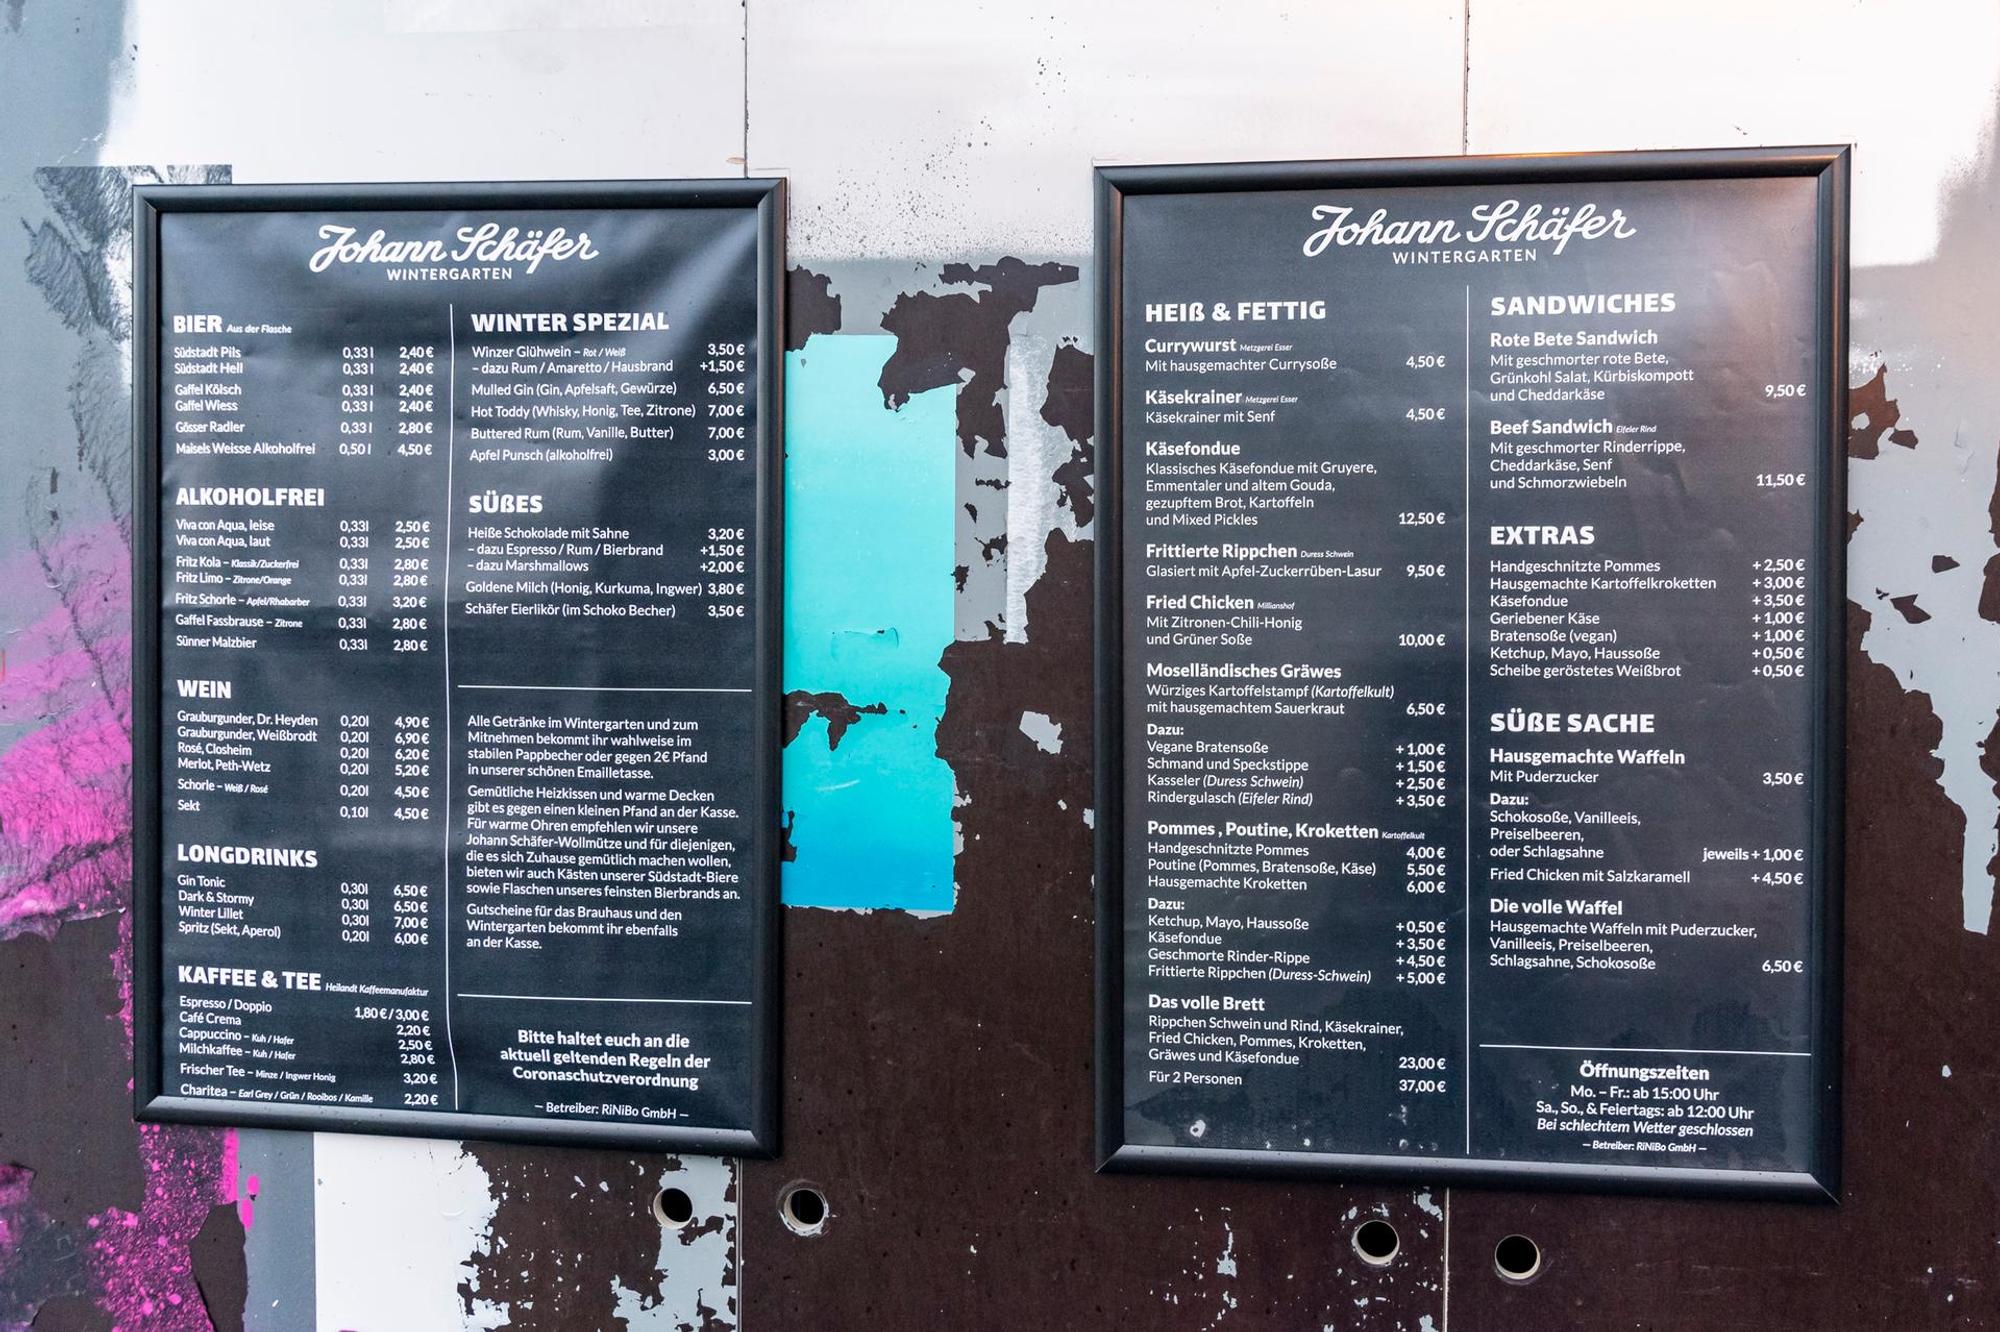 Johann Schäfer
WINTERGARTEN
BIER Aus der Flasche
Südstadt Pils 0,33 l 2,40 €
Südstadt Hell 0,33 l 2,40 €
Gaffel Kölsch 0,33 l 2,40 €
Gaffel Wiess 0,33 l 2,40 €
Gösser Radler 0,33 l 2,80 €
Maisels Weisse Alkoholfrei 0,50 l 4,50 €
ALKOHOLFREI
Viva con Aqua, leise 0,33l 2,50 €
Viva con Aqua, laut 0,33l 2,50 €
Fritz Kola – Klassik/Zuckerfrei 0,33l 2,80 €
Fritz Limo – Zitrone/Orange 0,33l 2,80 €
Fritz Schorle – Apfel/Rhabarber 0,33l 3,20 €
Gaffel Fassbrause – Zitrone 0,33l 2,80 €
Sünner Malzbier 0,33l 2,80 €
WEIN
Grauburgunder, Dr. Heyden 0,20l 4,90 €
Grauburgunder, Weißbrodt 0,20l 6,90 €
Rosé, Closheim 0,20l 6,20 €
Merlot, Peth-Wetz 0,20l 5,20 €
Schorle – Weiß / Rosé 0,20l 4,50 €
Sekt 0,10l 4,50 €
LONGDRINKS
Gin Tonic 0,30l 6,50 €
Dark & Stormy 0,30l 6,50 €
Winter Lillet 0,30l 7,00 €
Spritz (Sekt, Aperol) 0,20l 6,00 €
KAFFEE & TEE Heilandt Kaffeemanufaktur
Espresso / Doppio 1,80 € / 3,00 €
Café Crema 2,20 €
Cappuccino – Kuh / Hafer 2,50 €
Milchkaffee – Kuh / Hafer 2,80 €
Frischer Tee – Minze / Ingwer Honig 3,20 €
Charitea – Earl Grey / Grün / Rooibos / Kamille 2,20 €
WINTER SPEZIAL
Winzer Glühwein – Rot / Weiß 3,50 €
– dazu Rum / Amaretto / Hausbrand +1,50 €
Mulled Gin (Gin, Apfelsaft, Gewürze) 6,50 €
Hot Toddy (Whisky, Honig, Tee, Zitrone) 7,00 €
Buttered Rum (Rum, Vanille, Butter) 7,00 €
Apfel Punsch (alkoholfrei) 3,00 €
SÜẞES
Heiße Schokolade mit Sahne 3,20 €
– dazu Espresso / Rum / Bierbrand +1,50 €
– dazu Marshmallows +2,00 €
Goldene Milch (Honig, Kurkuma, Ingwer) 3,80 €
Schäfer Eierlikör (im Schoko Becher) 3,50 €
Alle Getränke im Wintergarten und zum
Mitnehmen bekommt ihr wahlweise im
stabilen Pappbecher oder gegen 2€ Pfand
in unserer schönen Emailletasse.
Gemütliche Heizkissen und warme Decken
gibt es gegen einen kleinen Pfand an der Kasse.
Für warme Ohren empfehlen wir unsere
Johann Schäfer-Wollmütze und für diejenigen,
die es sich Zuhause gemütlich machen wollen,
bieten wir auch Kästen unserer Südstadt-Biere
sowie Flaschen unseres feinsten Bierbrands an.
Gutscheine für das Brauhaus und den
Wintergarten bekommt ihr ebenfalls
an der Kasse.
Bitte haltet euch an die
aktuell geltenden Regeln der
Coronaschutzverordnung
– Betreiber: RiNiBo GmbH –
Johann Schäfer
WINTERGARTEN
HEIẞ & FETTIG
Currywurst Metzgerei Esser
Mit hausgemachter Currysoße 4,50 €
Käsekrainer Metzgerei Esser
Käsekrainer mit Senf 4,50 €
Käsefondue
Klassisches Käsefondue mit Gruyere,
Emmentaler und altem Gouda,
gezupftem Brot, Kartoffeln
und Mixed Pickles 12,50 €
Frittierte Rippchen Duress Schwein
Glasiert mit Apfel-Zuckerrüben-Lasur 9,50 €
Fried Chicken Millianshof
Mit Zitronen-Chili-Honig
und Grüner Soße 10,00 €
Moselländisches Gräwes
Würziges Kartoffelstampf (Kartoffelkult)
mit hausgemachtem Sauerkraut 6,50 €
Dazu:
Vegane Bratensoße + 1,00 €
Schmand und Speckstippe + 1,50 €
Kasseler (Duress Schwein) + 2,50 €
Rindergulasch (Eifeler Rind) + 3,50 €
Pommes , Poutine, Kroketten Kartoffelkult
Handgeschnitzte Pommes 4,00 €
Poutine (Pommes, Bratensoße, Käse) 5,50 €
Hausgemachte Kroketten 6,00 €
Dazu:
Ketchup, Mayo, Haussoße + 0,50 €
Käsefondue + 3,50 €
Geschmorte Rinder-Rippe + 4,50 €
Frittierte Rippchen (Duress-Schwein) + 5,00 €
Das volle Brett
Rippchen Schwein und Rind, Käsekrainer,
Fried Chicken, Pommes, Kroketten,
Gräwes und Käsefondue 23,00 €
Für 2 Personen 37,00 €
SANDWICHES
Rote Bete Sandwich
Mit geschmorter rote Bete,
Grünkohl Salat, Kürbiskompott
und Cheddarkäse 9,50 €
Beef Sandwich Eifeler Rind
Mit geschmorter Rinderrippe,
Cheddarkäse, Senf
und Schmorzwiebeln 11,50 €
EXTRAS
Handgeschnitzte Pommes + 2,50 €
Hausgemachte Kartoffelkroketten + 3,00 €
Käsefondue + 3,50 €
Geriebener Käse + 1,00 €
Bratensoße (vegan) + 1,00 €
Ketchup, Mayo, Haussoße + 0,50 €
Scheibe geröstetes Weißbrot + 0,50 €
SÜẞE SACHE
Hausgemachte Waffeln
Mit Puderzucker 3,50 €
Dazu:
Schokosoße, Vanilleeis,
Preiselbeeren,
oder Schlagsahne jeweils + 1,00 €
Fried Chicken mit Salzkaramell + 4,50 €
Die volle Waffel
Hausgemachte Waffeln mit Puderzucker,
Vanilleeis, Preiselbeeren,
Schlagsahne, Schokosoße 6,50 €
Öffnungszeiten
Mo. – Fr.: ab 15:00 Uhr
Sa., So., & Feiertags: ab 12:00 Uhr
Bei schlechtem Wetter geschlossen
– Betreiber: RiNiBo GmbH –